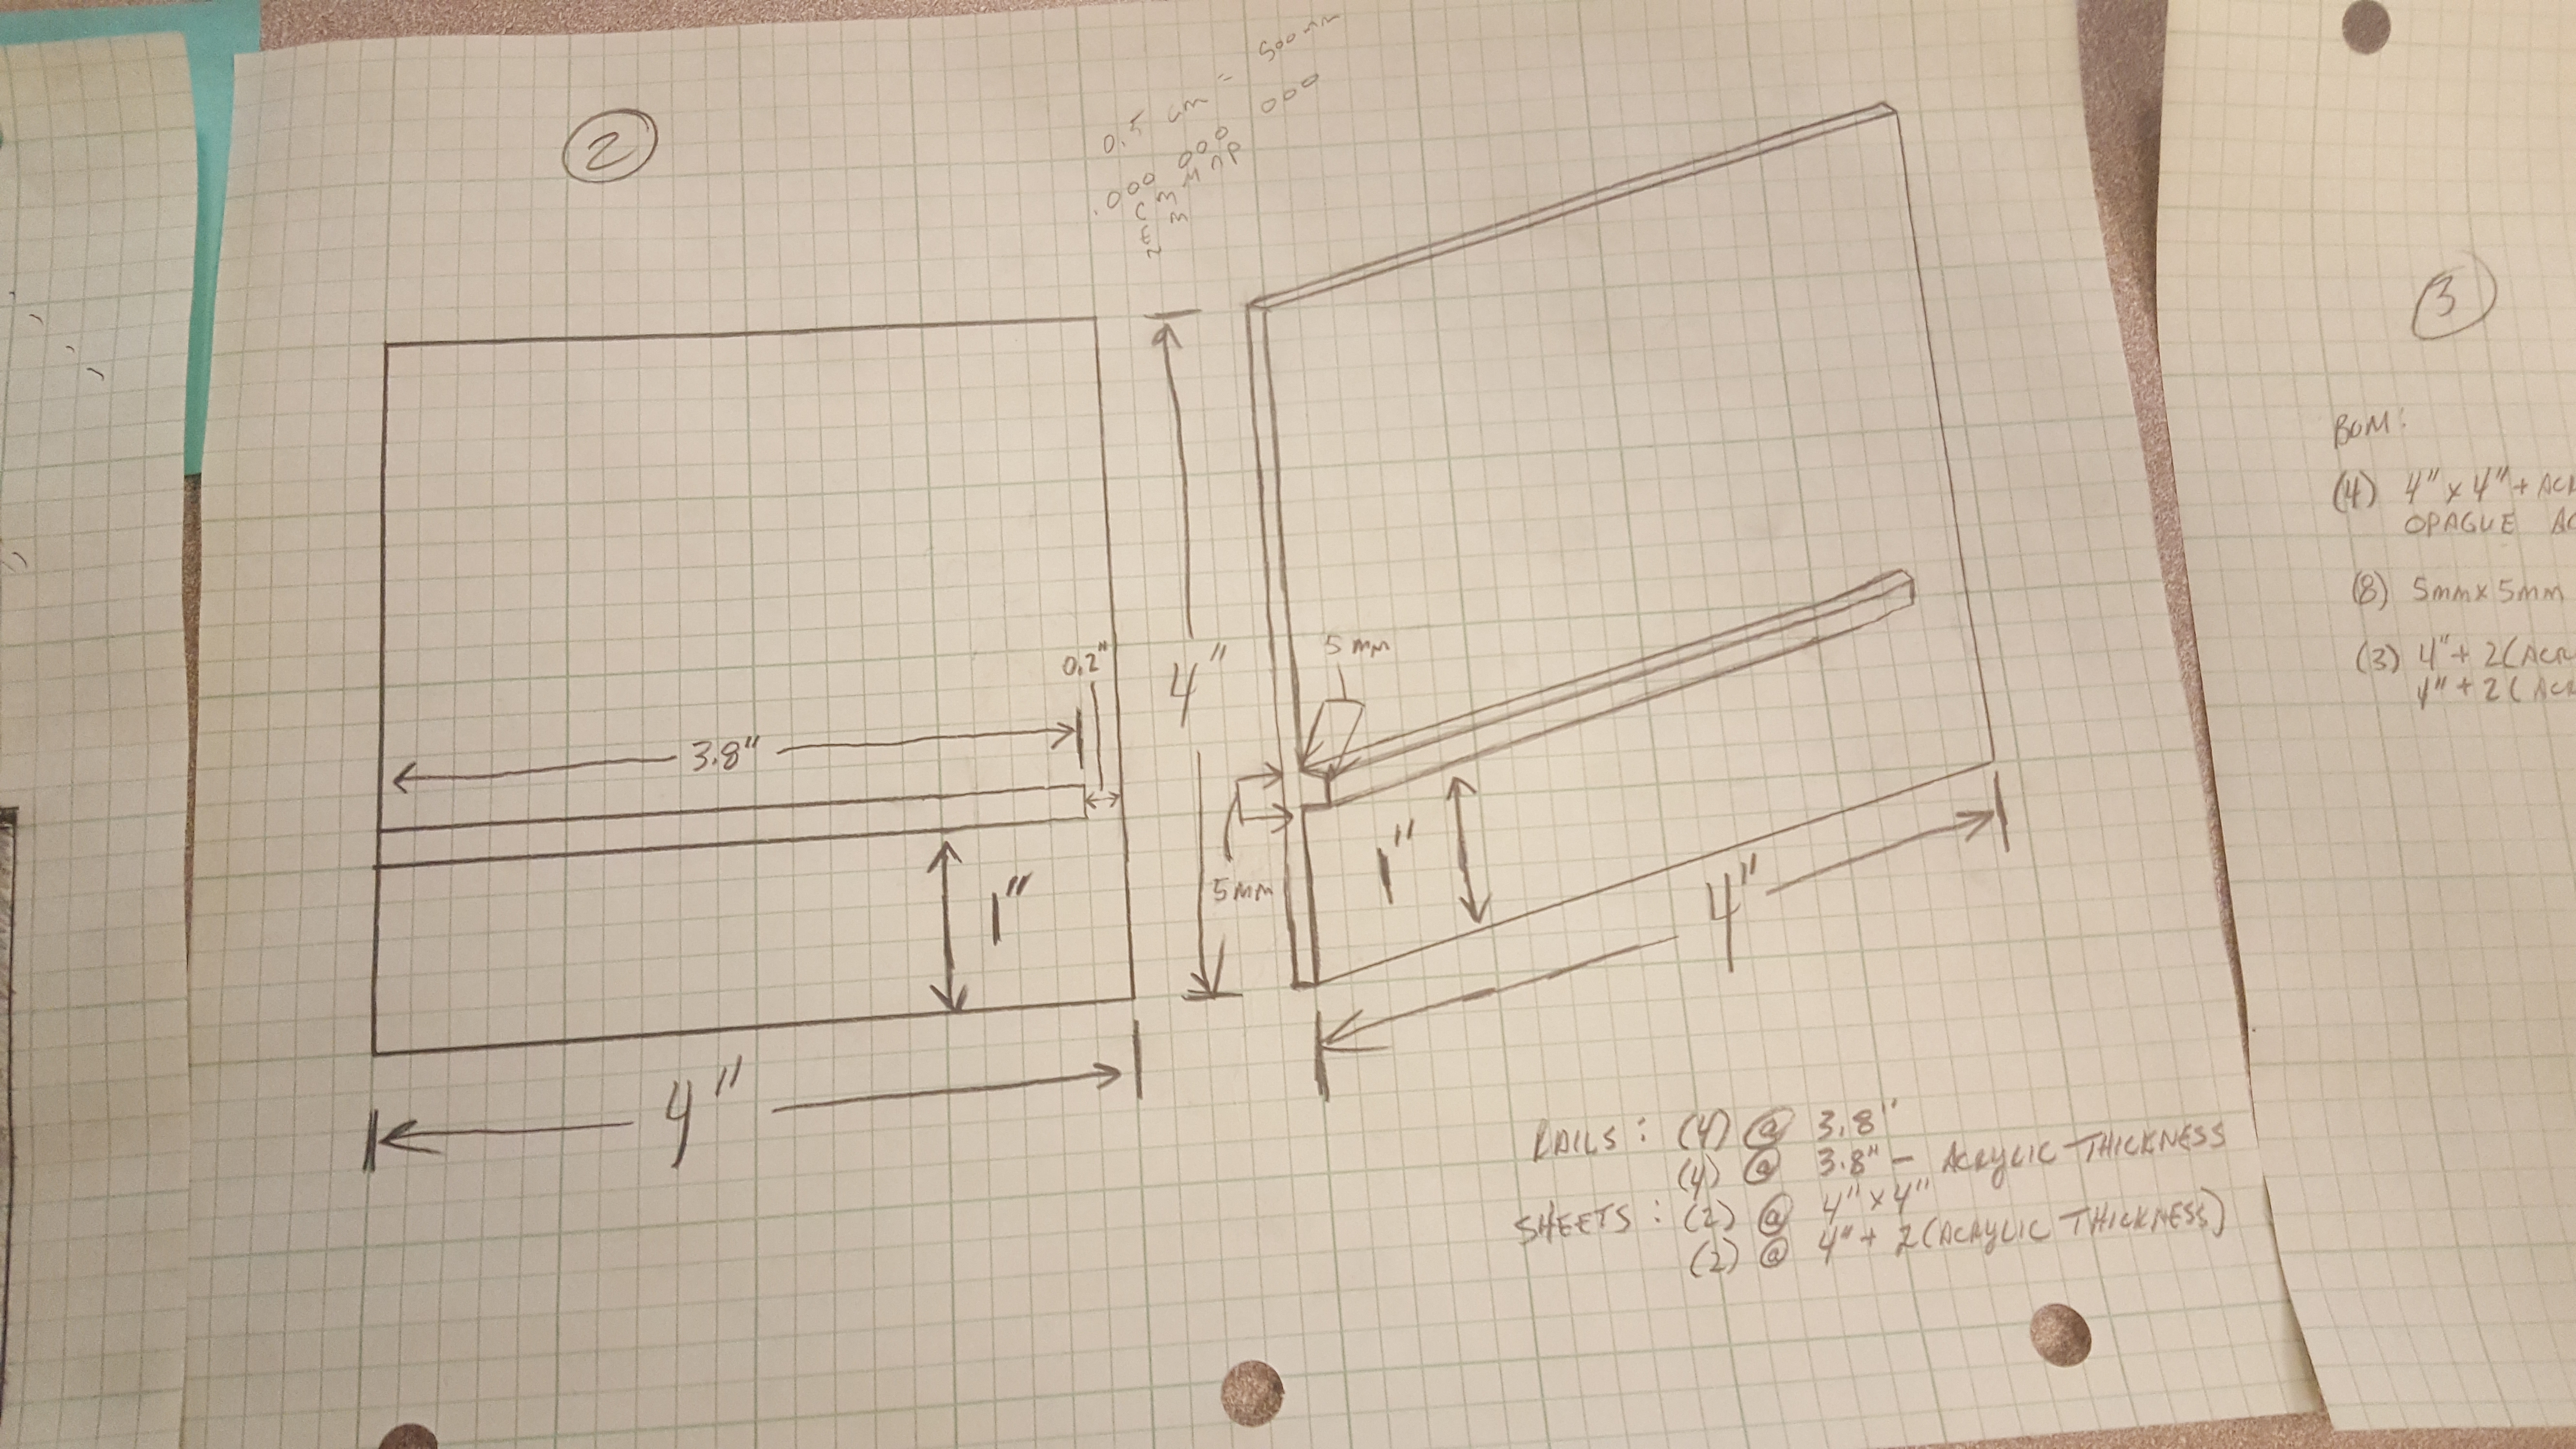 2
0.5 cm = 500 mm
.000 000 000
C m M n P
E m
N
0.2"
3.8"
1"
4"
4"
5mm
5mm
1"
4"
RAILS: (4) @ 3.8"
(4) @ 3.8" - ACRYLIC THICKNESS
SHEETS: (2) @ 4" x 4"
(2) @ 4" + 2(ACRYLIC THICKNESS)
3
BOM:
(4) 4" x 4" + ACR
OPAGUE AC
(8) 5mm x 5mm
(3) 4" + 2(ACR
4" + 2(ACR